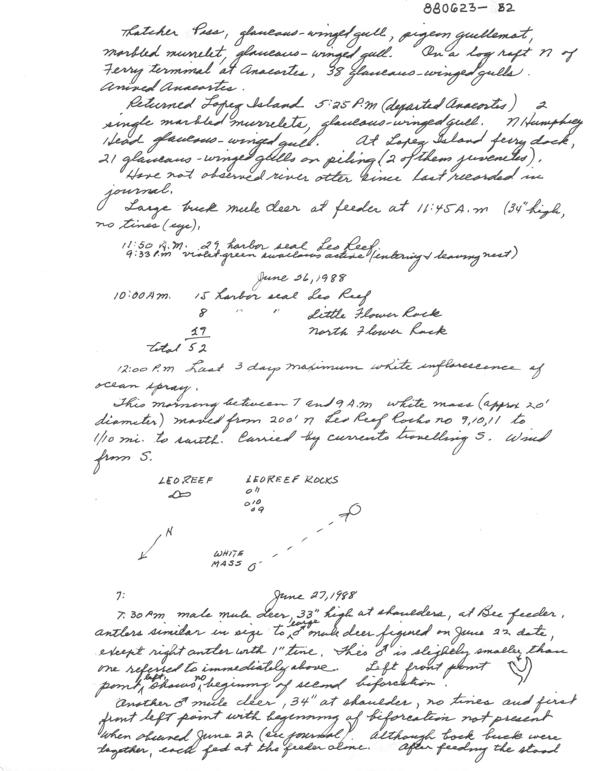 880623- B2
Thatcher Pass, glaucous-winged gull, pigeon guillemot,
marbled murrelet, glaucous-winged gull. On a log raft N of
Ferry terminal at Anacortes, 38 glaucous-winged gulls.
arrived Anacortes.
Returned Lopez Island 5:25 P.M (departed Anacortes) 2
single marbled murrelets, glaucous-winged gull. N Humphrey
Head glaucous-winged gull. At Lopez Island ferry dock,
21 glaucous-winged gulls on piling (2 of them juveniles).
Have not observed river otter since last recorded in
journal.
Large buck mule deer at feeder at 11:45 A.M (34" high,
no tines (eye),
11:50 A.M. 29 harbor seal Leo Reef.
9:33 P.M violet green swallows active (entering & leaving nest)
June 26, 1988
10:00 AM. 15 harbor seal Leo Reef
8 " " Little Flower Rock
29 North Flower Rock
Total 52
12:00 P.M Last 3 days maximum white inflorescence of
ocean spray.
This morning between 7 and 9 A.M white mass (approx 20'
diameter) moved from 200' N Leo Reef Rocks no 9,10,11 to
1/10 mi. to south. Carried by currents travelling S. Wind
from S.
LEO REEF LEO REEF ROCKS
011
010
09
N
WHITE
MASS
7: June 27, 1988
7:30 PM male mule deer, 33" high at shoulders, at Bee feeder,
antlers similar in size to large ♂ mule deer figured on June 22 date,
except right antler with 1" tine. This ♂ is slightly smaller than
one referred to immediately above. Left front point
point, left, shows no beginning of second biforcation.
Another ♂ mule deer, 34" at shoulder, no tines and first
front left point with beginning of biforcation not present
when observed June 22 (see journal). Although both bucks were
together, each fed at the feeder alone. After feeding the stood